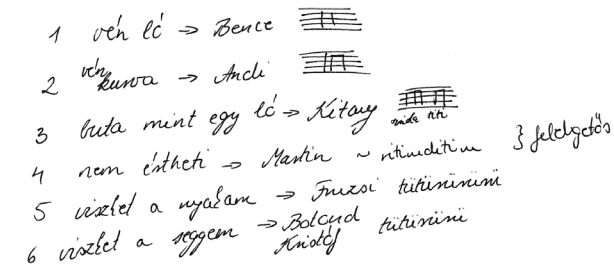 1 vén ló → Bence
2 vén kurva → Andi
3 buta mint egy ló → Kitany
titi
4 nem értheti → Martin ~ ritimditim } felelgetős
5 viszket a nyakam → Fruzsi titinínini
6 viszket a seggem → Botond Kristóf titiníni